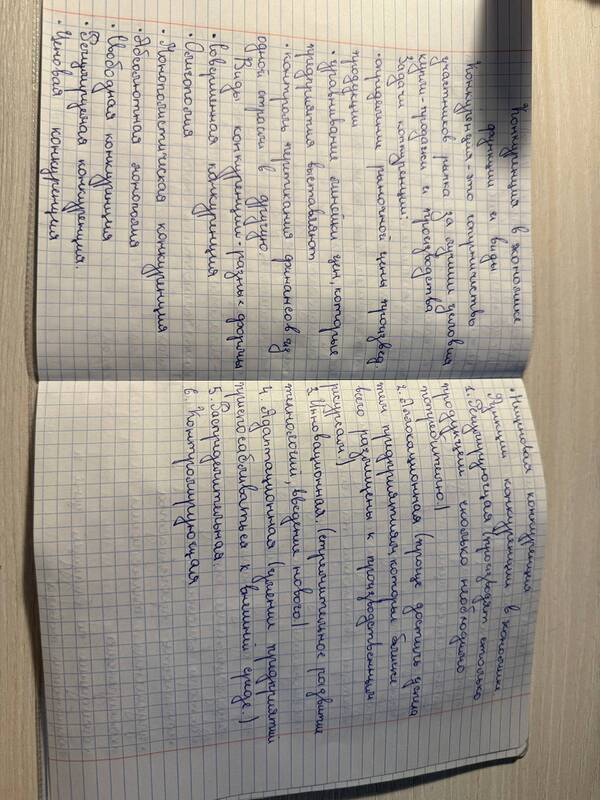 Конкуренция в экономике
функции и виды
Конкуренция - это соперничество
участников рынка за лучшие условия
купли-продажи и производства
Задачи конкуренции:
• определении рыночной цены произвед
продукции
• уравнивание линейки цен, которые
предприятия выставляют
• контроль перетикания финансов из
одной отрасли в другую.
Виды конкуренции - разные формы
• Совершенная конкуренция
• Олигополия
• Монополистическая конкуренция
• Абсолютная монополия
• Свободная конкуренция
• Регулируемая конкуренция.
• Ценовая конкуренция
• Неценовая конкуренция
Функции конкуренции в экономике
1. Регулирующая (производят столько
продукции сколько необходимо
потребителю)
2. Аллокационная (проще достичь успеха
тем предприятиям, которые ближе
всего размещены к производственным
ресурсам.)
3. Инновационная. (стремительное развитие
технологий, введение нового)
4. Адаптационная (умении предприятии
приспосабливаться к внешней среде.)
5. Распределительная.
6. Контролирующая